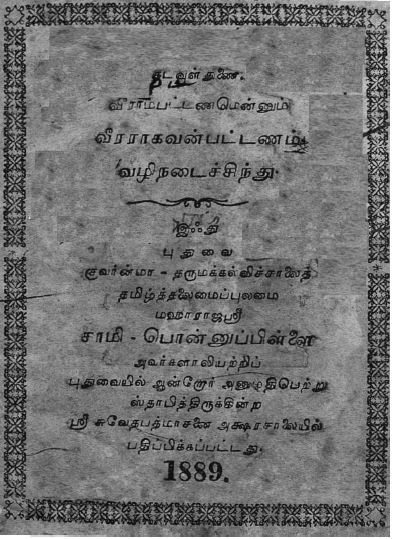 கடவுள் துணை.
வீராம்பட்டணமென்னும்
வீரராகவன்பட்டணம்
வழிநடைச்சிந்து.
இஃது
புதுவை
குவர்ன்மா - தருமக்கல்விச்சாலைத்
தமிழ்த்தலைமைப்புலமை
மஹாராஜஸ்ரீ
சாமி - பொன்னுப்பிள்ளை
அவர்களாலியற்றிப்
புதுவையில் ஆன்றோர் அனுமதிபெற்று
ஸ்தாபித்திருக்கின்ற
ஸ்ரீ சுவேதபத்மாசனை அக்ஷரசாலையில்
பதிப்பிக்கப்பட்டது.
1889.